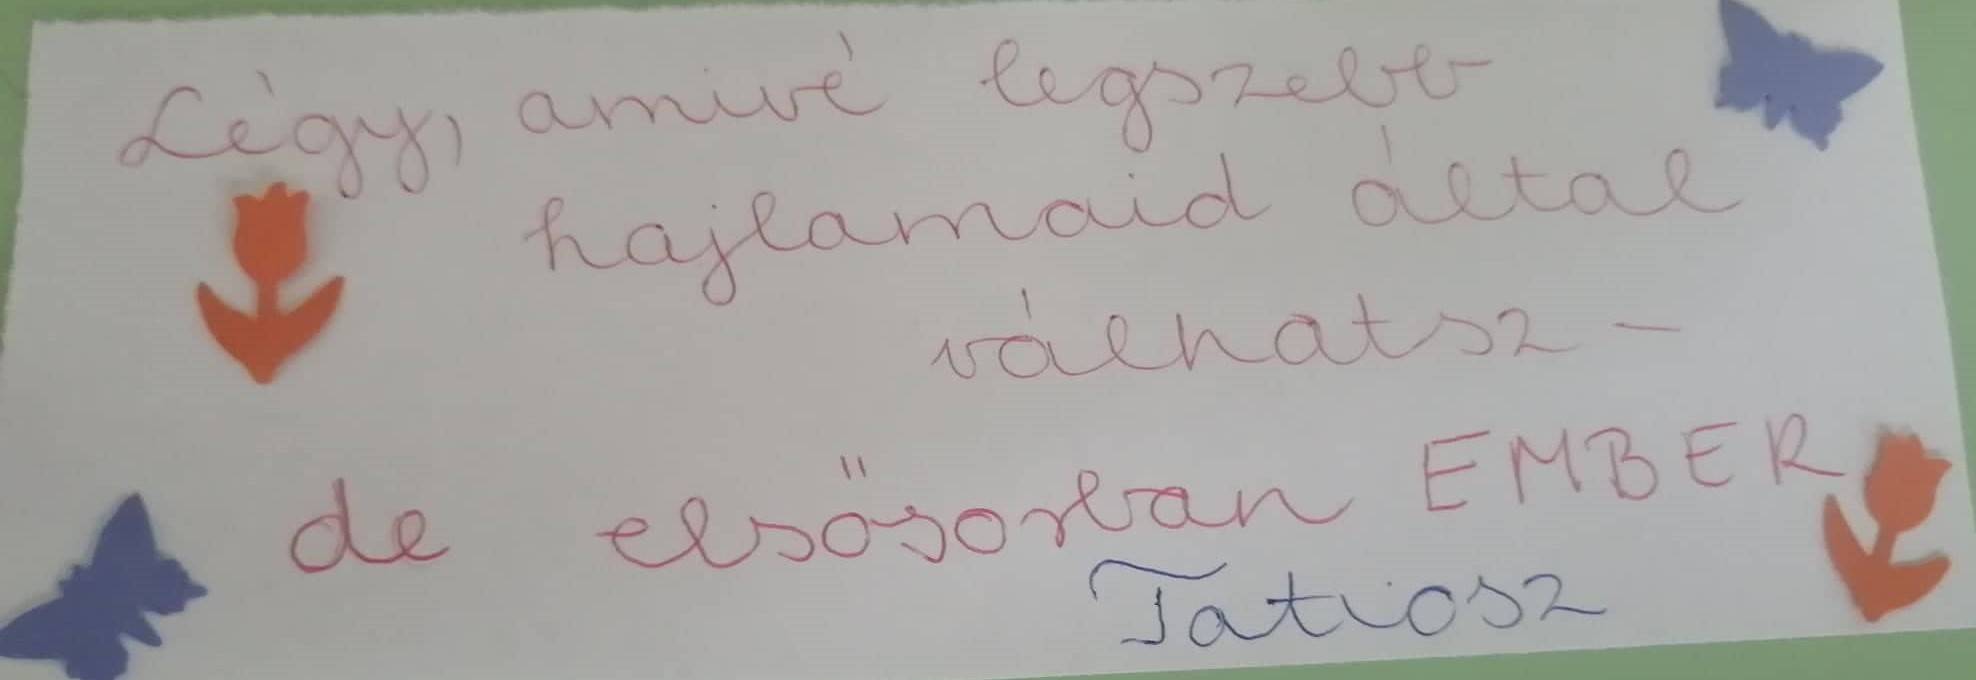 Légy, amivé legszebb
hajlamaid által
válhatsz -
de elsősorban EMBER
Tatiosz